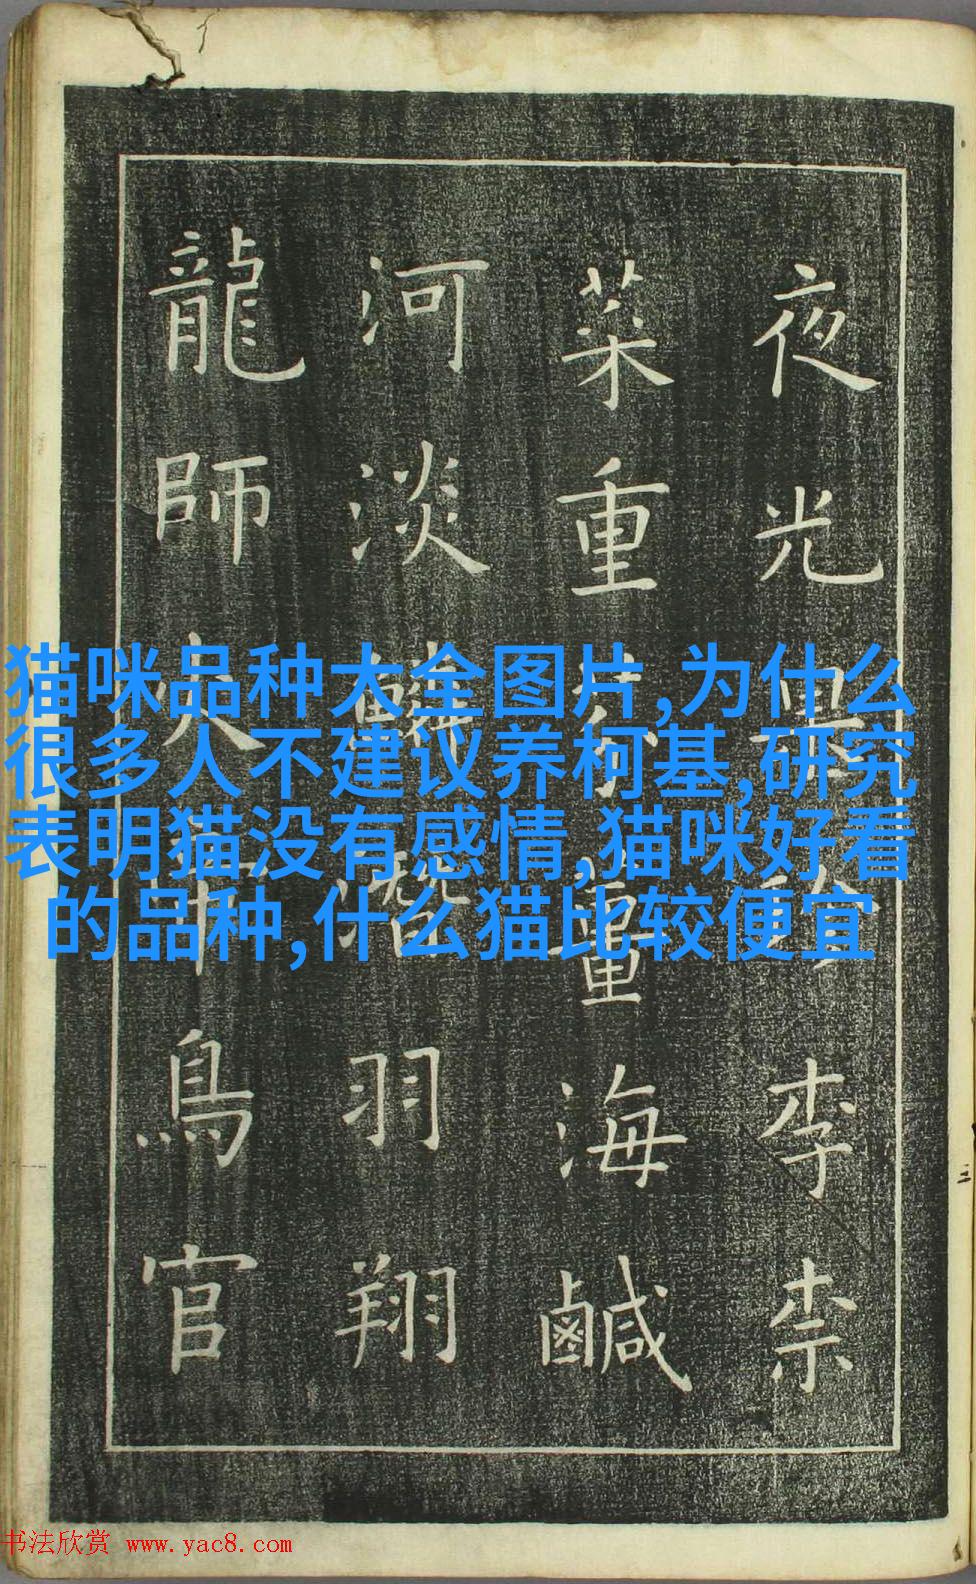 夜光果珍李柰
菜重芥薑海鹹
河淡鱗潛羽翔
龍師火帝鳥官
猫咪品种大全图片,为什么
很多人不建议养柯基,研究
表明猫没有感情,猫咪好看
的品种,什么猫比较便宜
书法欣赏 www.yac8.com